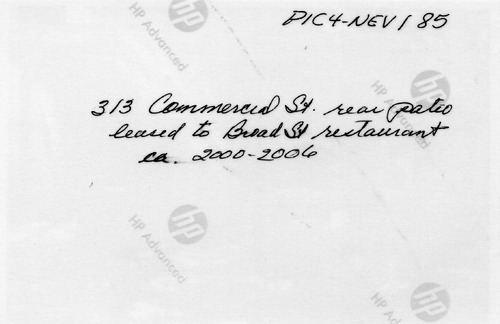 PIC4-NEV/85
313 Commercial St. rear patio
leased to Broad St restaurant
ca. 2000-2006
HP Advanced
hp
HP Advanced
hp
HP Advanced
hp
HP Advanced
hp